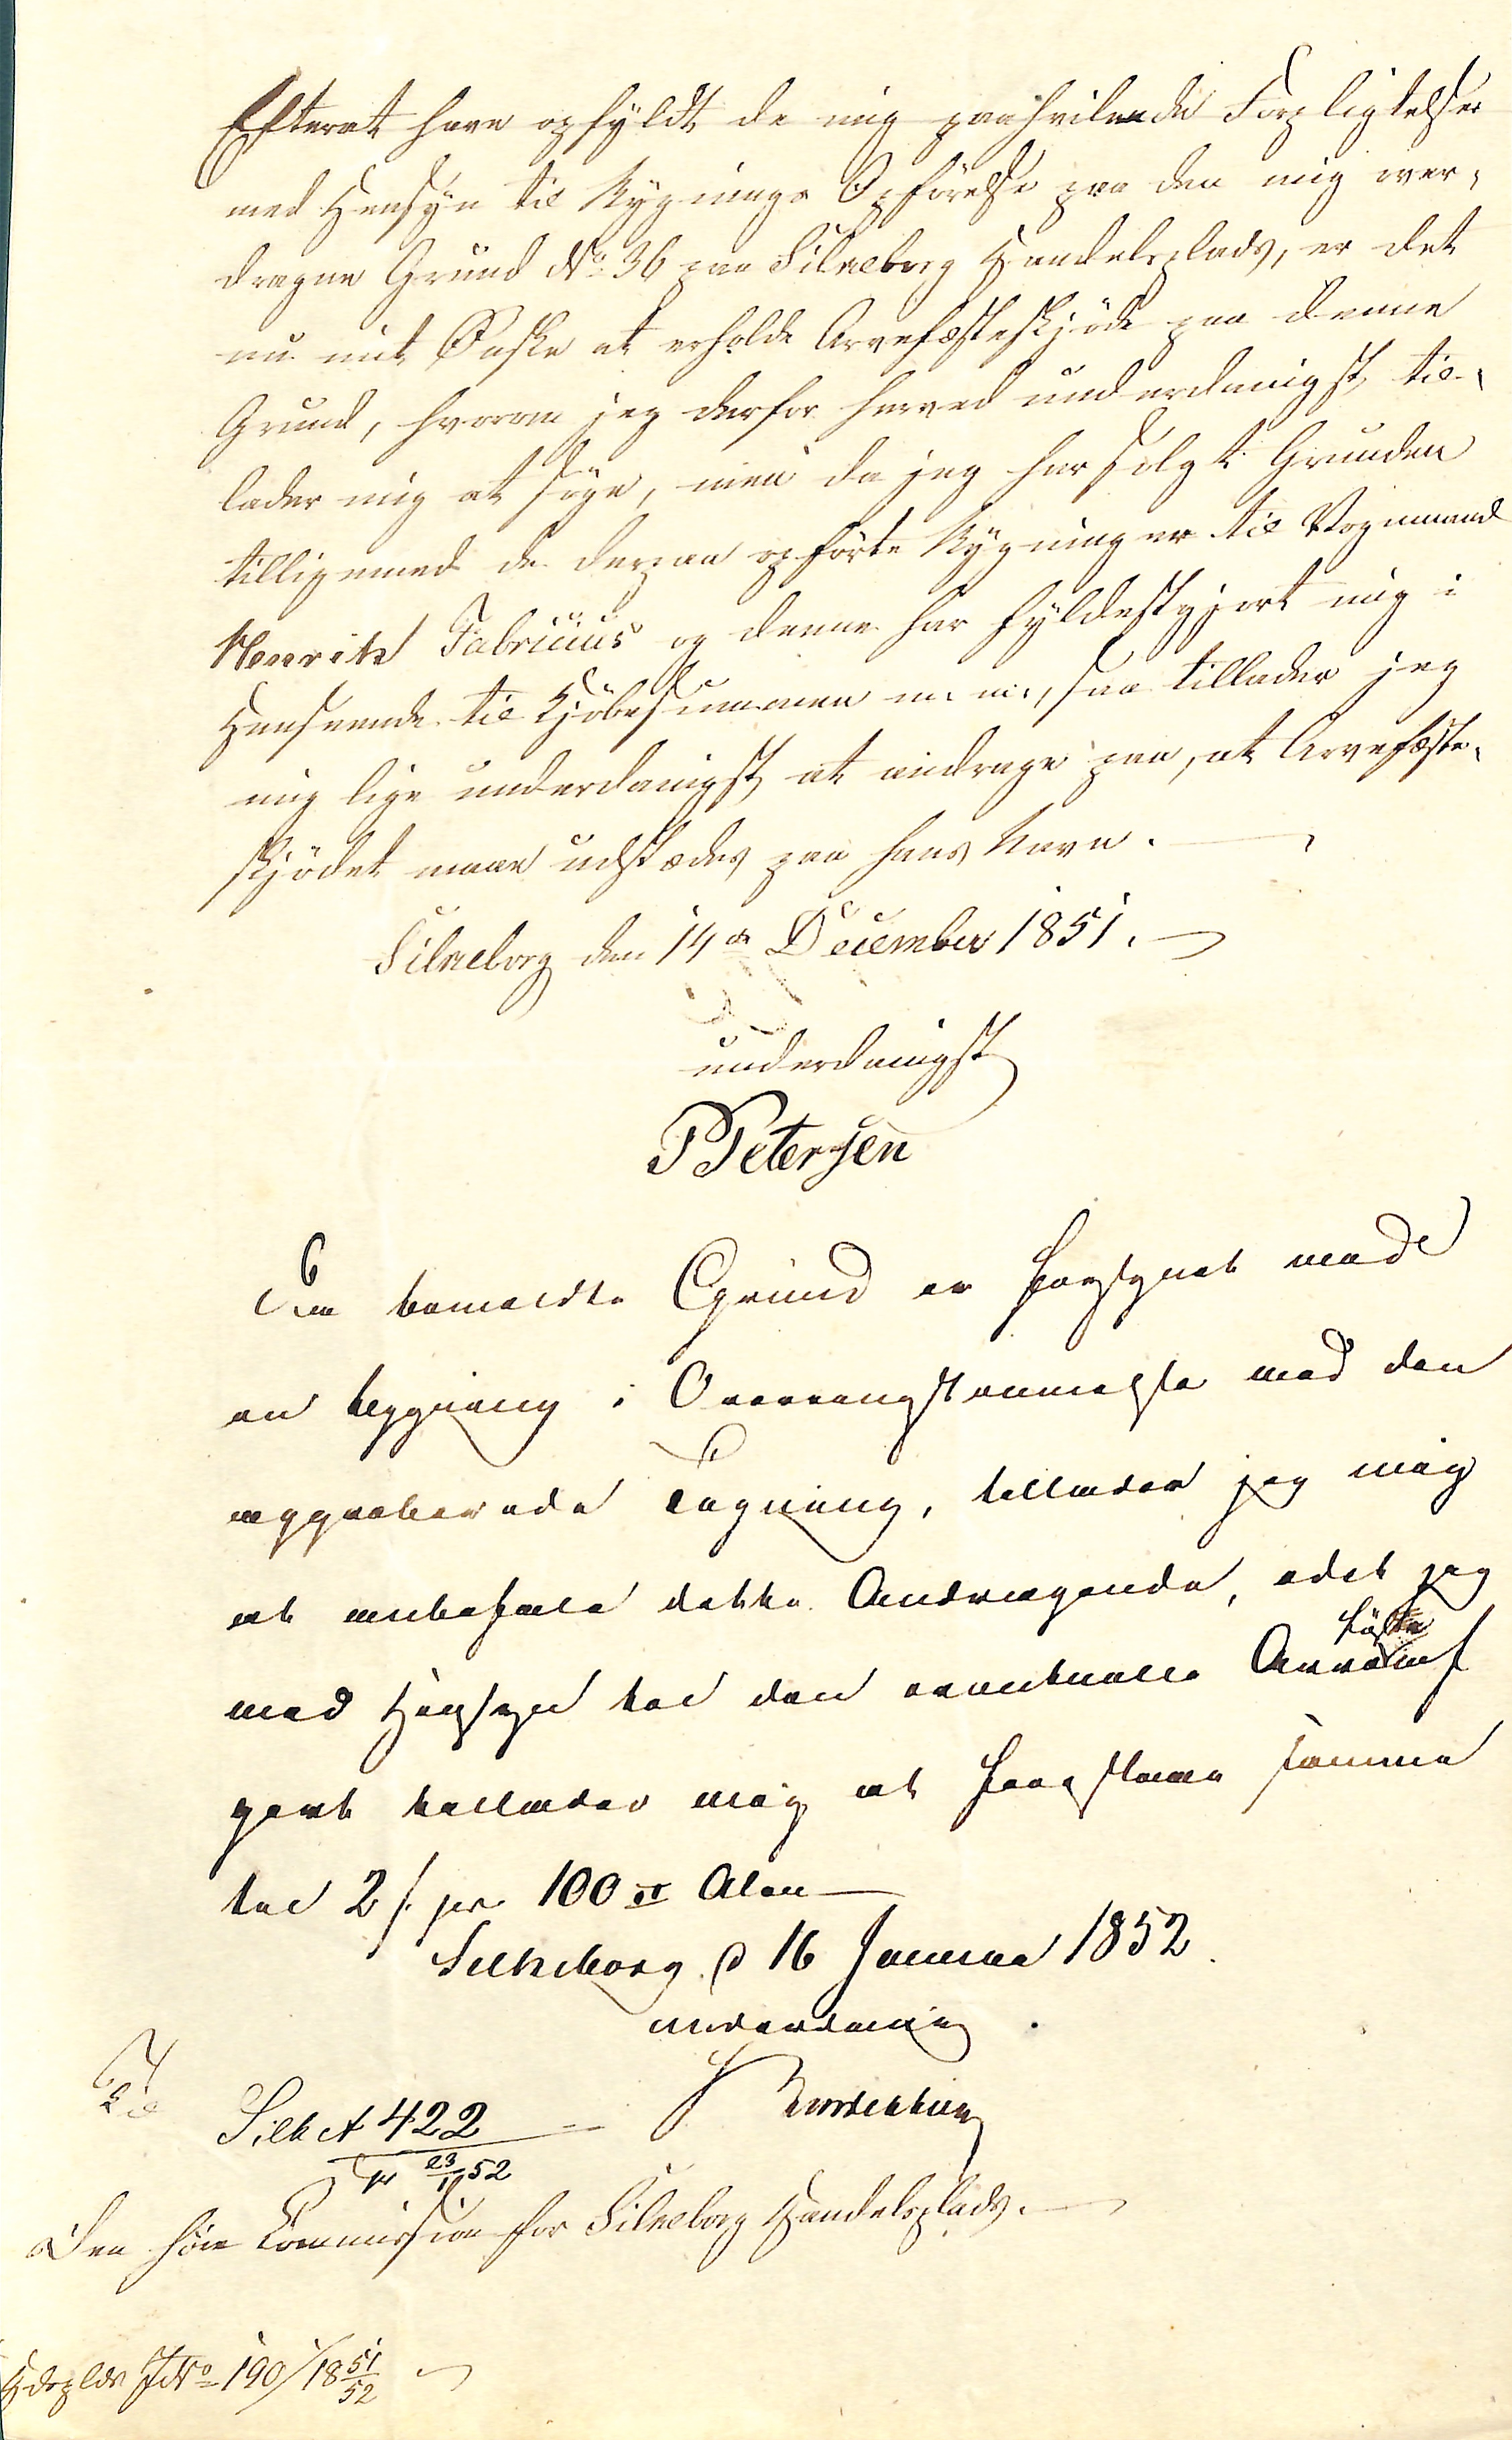 Efterat have opfyldt de mig paahvilende Forpligtelser
med Hensyn til Bygnings Opførelse paa den mig over-
dragne Grund No 36 paa Silkeborg Handelsplads, er det
nu mit Ønske at erholde Arvefæsteskjøde paa denne
Grund, hvorom jeg derfor herved underdanigst til-
lader mig at søge, men da jeg har solgt Grunden
tilligemed de derpaa opførte Bygninger til Vognmand
Henrik Fabricius og denne har fyldestgjort mig i
Henseende til Kjøbesummen m. m., saa tillader jeg
mig lige underdanigst at andrage paa, at Arvefæste-
skjødet maae udstædes paa hans Navn.
Silkeborg den 14de December 1851.
underdanigst
P Petersen
Paa bemeldte Grund er forsynet med
en bygning i Overeensstemmelse med den
approberede Tegning, tillader jeg mig
at anbefale dette Andragende, idet jeg
med Hensyn til den eventuelle Arvefæste
tillader mig at foreslaae samme
til 2 s. pr 100 □ Alen
Silkeborg d 16 Januar 1852.
underdanig
Til
Silk A 422
pr 23/1 52
Den høie Commission for Silkeborg Handelsplads.
Hdsplds J No 190/1851/52